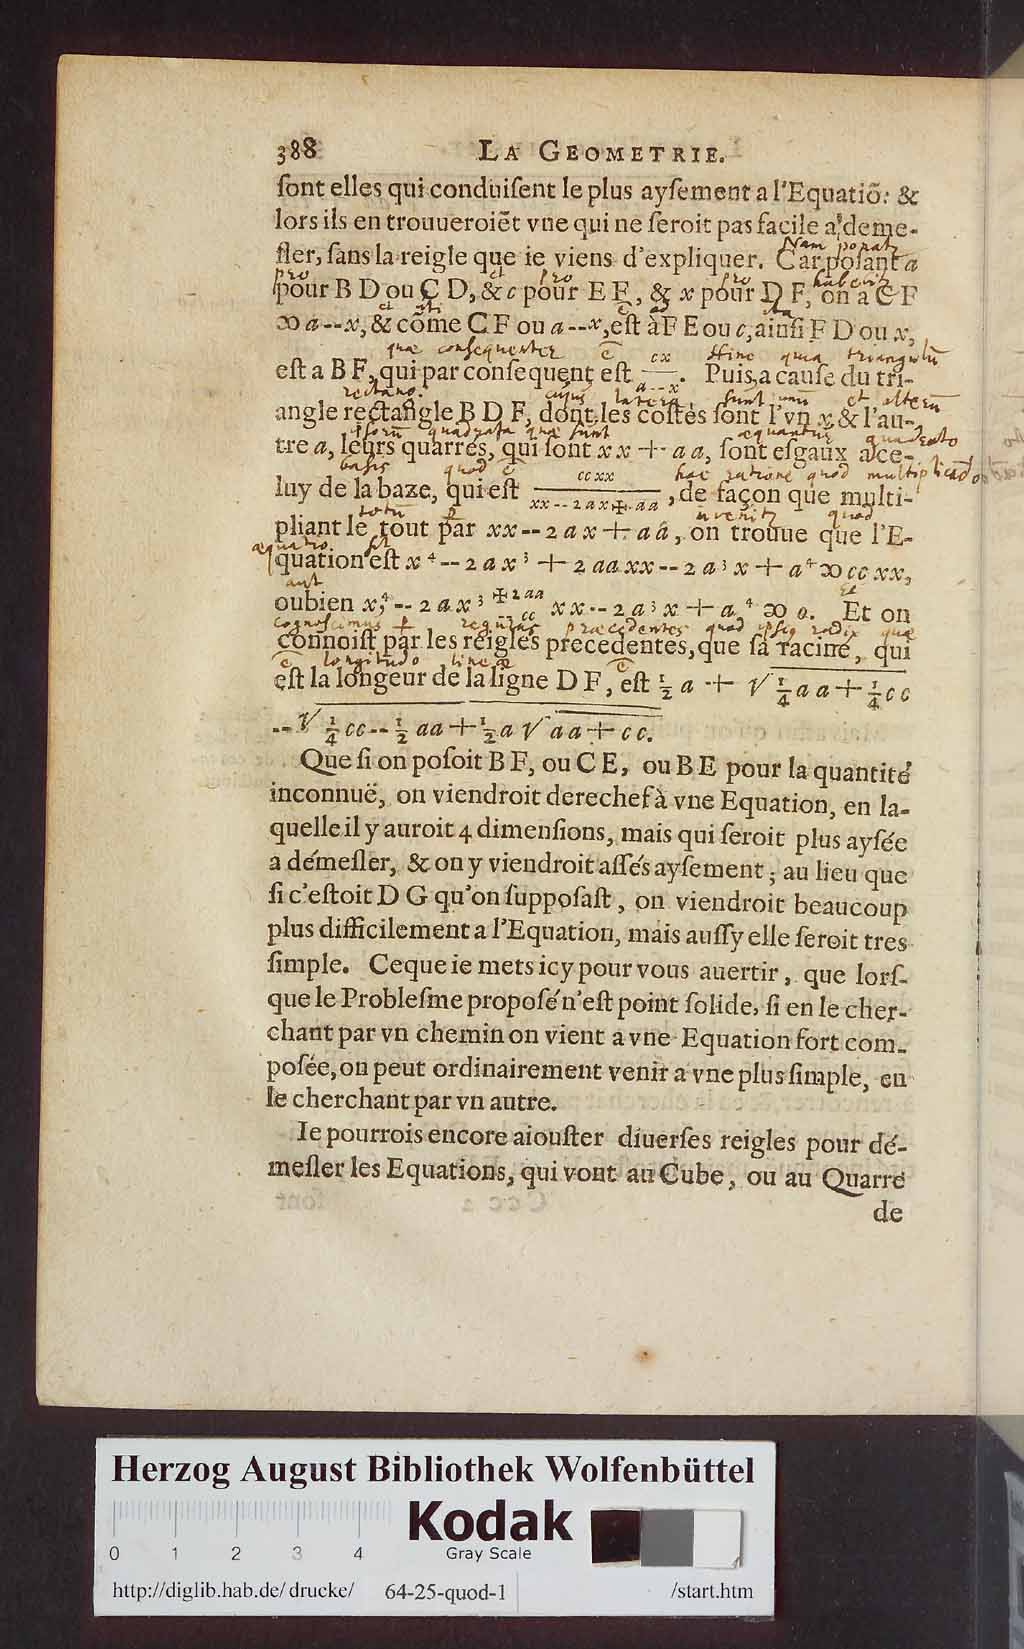 388 LA GEOMETRIE.
ſont elles qui conduiſent le plus ayſement a l'Equatiõ: &
lors ils en trouueroiẽt vne qui ne ſeroit pas facile a deme-
ſler, ſans la reigle que ie viens d'expliquer. Car poſant a
pro et pro pro habebitz
pour B D ou C D, & c pour E F, & x pour D F, on a C F
∞ a -- x, & cõme C F ou a -- x, eſt à F E ou c, ainſi F D ou x,
quæ consequenter ẽ Hinc quia triangulũ
eſt a B F, qui par conſequent eſt cx / a -- x. Puis, a cauſe du tri-
rectang. cujus latera sunt unũ et alterũ
angle rectangle B D F, dont les coſtés ſont l'vn x & l'au-
ipsorũ quadrata quæ sunt æquantur quadrato
tre a, leurs quarrés, qui ſont xx + aa, ſont eſgaux a ce-
basis quod ẽ hac ratione quod multiplicãdo
luy de la baze, qui eſt ccxx / xx -- 2ax + aa, de façon que multi-
totũ invenitz quod
pliant le tout par xx -- 2ax + aa, on trouue que l'E-
æquatio sit
quation eſt x⁴ -- 2ax³ + 2aaxx -- 2a³x + a⁴ ∞ ccxx,
aut Et
oubien x⁴, -- 2ax³ + 2aa -- cc xx -- 2a³x + a⁴ ∞ o. Et on
cognoscimus regulas præcedentes quod ipsiq radix quæ
connoiſt par les reigles precedentes, que ſa racine, qui
ẽ longitudo lineæ ẽ
eſt la longeur de la ligne D F, eſt ½ a + √ ¼ aa + ¼ cc
-- √ ¼ cc -- ½ aa + ½ a √ aa + cc.
Que ſi on poſoit B F, ou C E, ou B E pour la quantité
inconnuë, on viendroit derechef à vne Equation, en la-
quelle il y auroit 4 dimenſions, mais qui ſeroit plus ayſée
a démeſler, & on y viendroit aſſés ayſement; au lieu que
ſi c'eſtoit D G qu'on ſuppoſaſt, on viendroit beaucoup
plus difficilement a l'Equation, mais auſſy elle ſeroit tres
ſimple. Ce que ie mets icy pour vous auertir, que lorſ-
que le Probleſme propoſé n'eſt point ſolide, ſi en le cher-
chant par vn chemin on vient a vne Equation fort com-
poſée, on peut ordinairement venir a vne plus ſimple, en
le cherchant par vn autre.
Ie pourrois encore aiouſter diuerſes reigles pour dé-
meſler les Equations, qui vont au Cube, ou au Quarré
de
Herzog August Bibliothek Wolfenbüttel
Kodak
Gray Scale
0 1 2 3 4
http://diglib.hab.de/drucke/ 64-25-quod-1 /start.htm